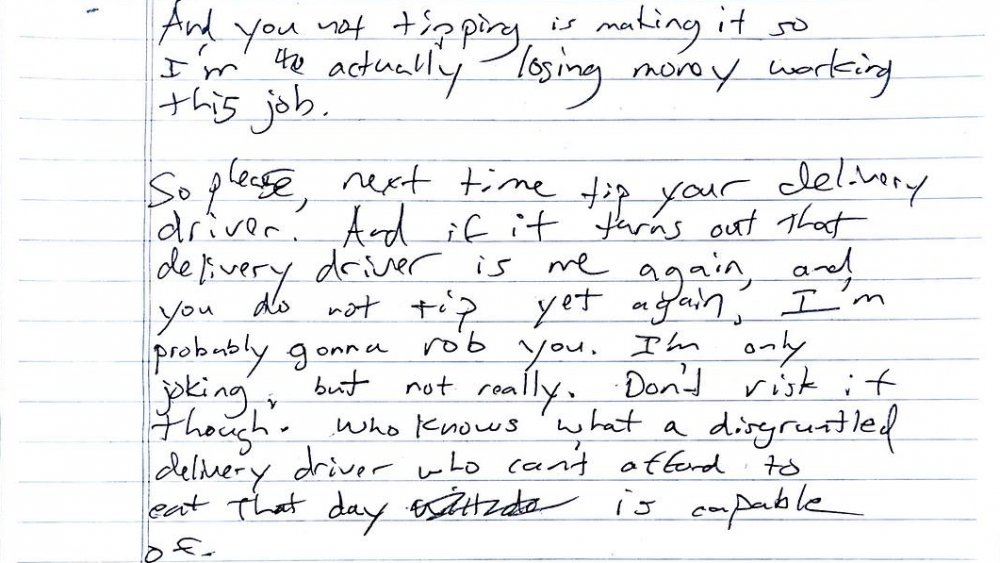 And you not tipping is making it so
I'm actually losing money working
this job.
So please, next time tip your delivery
driver. And if it turns out that
delivery driver is me again, and
you do not tip yet again, I'm
probably gonna rob you. I'm only
joking, but not really. Don't risk it
though. Who knows what a disgruntled
delivery driver who can't afford to
eat that day is capable
of.